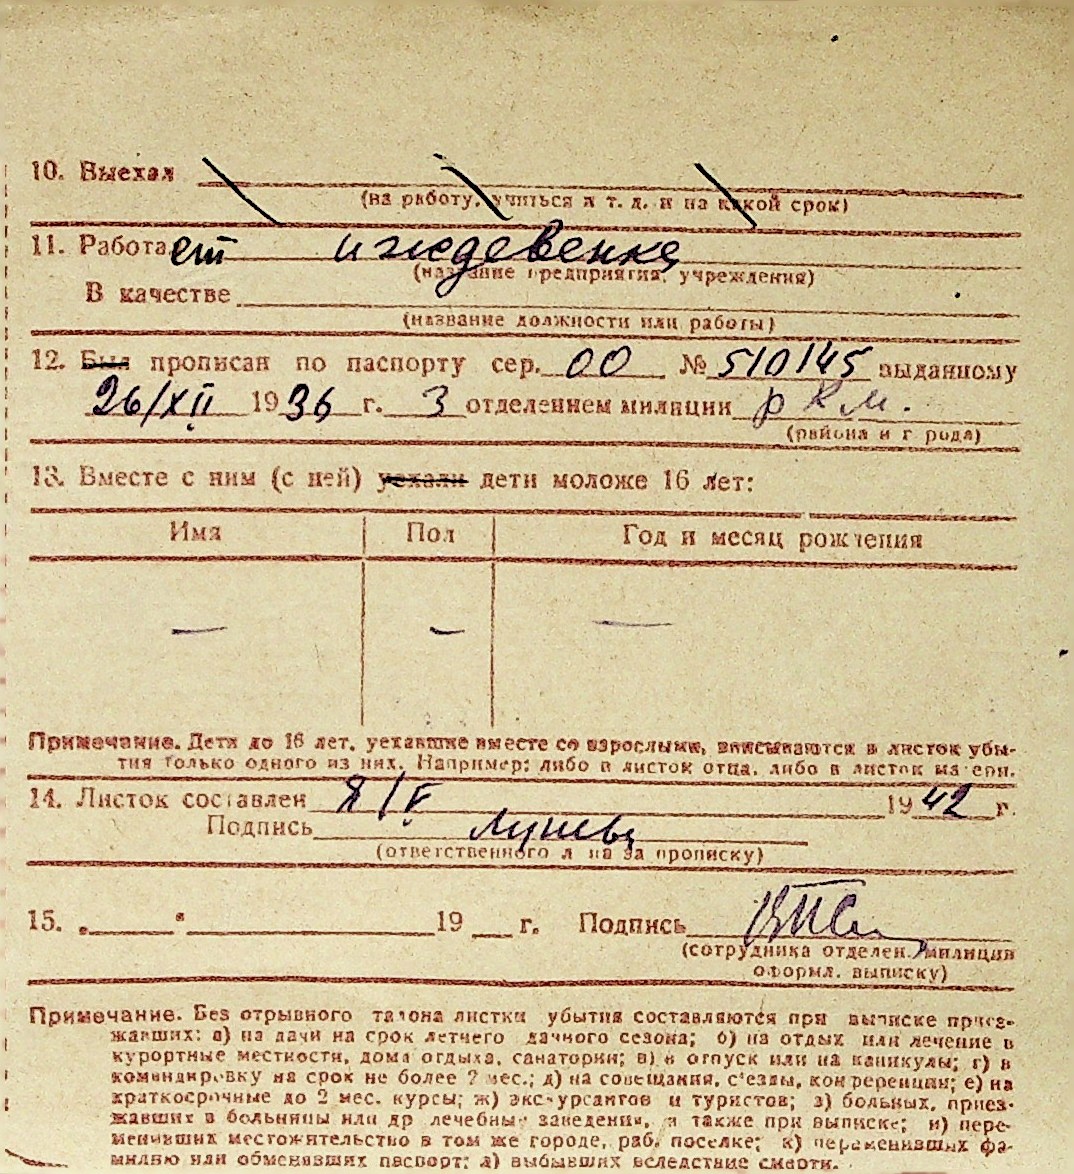 10. Выехал
(на работу, учиться и т. д. и на какой срок)
11. Работает иждевенка
(название предприятия, учреждения)
В качестве
(название должности или работы)
12. Был прописан по паспорту сер. 00 № 510145 выданному
26/XII 1936 г. 3 отделением милиции РКМ.
(района и города)
13. Вместе с ним (с ней) уехали дети моложе 16 лет:
Имя Пол Год и месяц рождения
— — —
Примечание. Дети до 16 лет, уехавшие вместе со взрослыми, вписываются в листок убы-
тия только одного из них. Например: либо в листок отца, либо в листок матери.
14. Листок составлен /V 1942 г.
Подпись
(ответственного лица за прописку)
15. „ " 19 г. Подпись
(сотрудника отделен. милиции
оформл. выписку)
Примечание. Без отрывного талона листки убытия составляются при выписке приез-
жавших: а) на дачи на срок летнего дачного сезона; б) на отдых или лечение в
курортные местности, дома отдыха, санатории; в) в отпуск или на каникулы; г) в
командировку на срок не более 2 мес.; д) на совещания, с'езды, конференции; е) на
краткосрочные до 2 мес. курсы; ж) экскурсантов и туристов; з) больных, приез-
жавших в больницы или др лечебные заведения, а также при выписке; и) пере-
менивших местожительство в том же городе, раб. поселке; к) переменивших фа-
милию или обменявших паспорт; л) выбывших вследствие смерти.